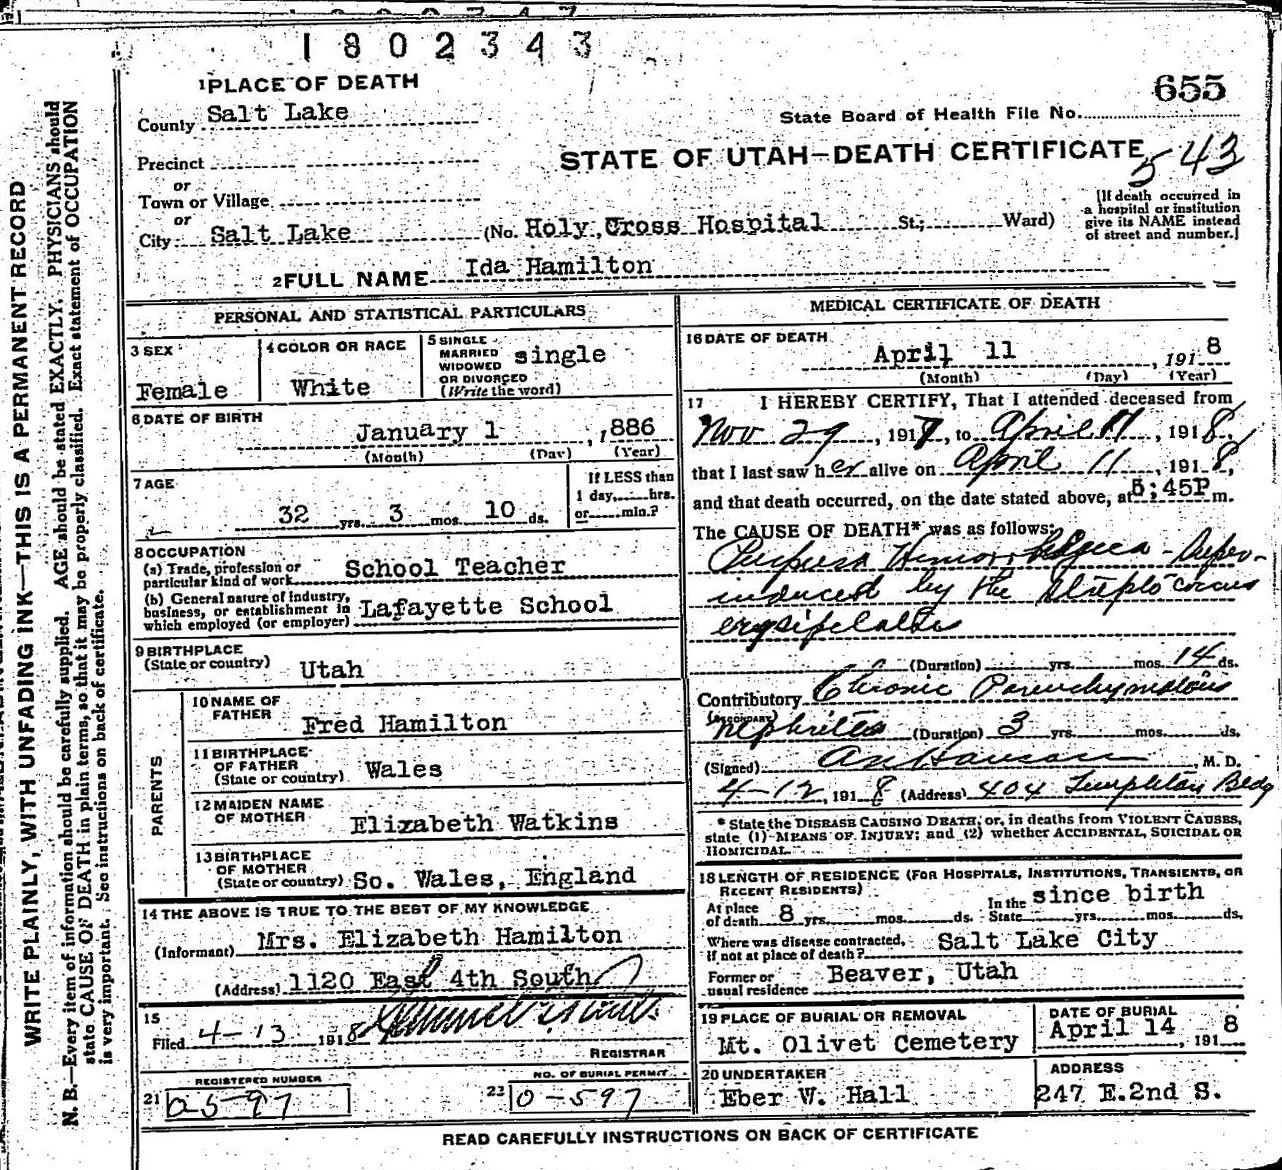 1802343
1 PLACE OF DEATH
655
County Salt Lake
State Board of Health File No.
Precinct
STATE OF UTAH—DEATH CERTIFICATE
543
or
Town or Village
or
City Salt Lake (No. Holy Cross Hospital St.; Ward)
[If death occurred in
a hospital or institution
give its NAME instead
of street and number.]
2 FULL NAME Ida Hamilton
PERSONAL AND STATISTICAL PARTICULARS
3 SEX
Female
4 COLOR OR RACE
White
5 SINGLE
MARRIED
WIDOWED
OR DIVORCED
(Write the word)
single
6 DATE OF BIRTH
January 1, 1886
(Month) (Day) (Year)
7 AGE
32 yrs. 3 mos. 10 ds.
If LESS than
1 day, hrs.
or min.?
8 OCCUPATION
(a) Trade, profession or
particular kind of work School Teacher
(b) General nature of industry,
business, or establishment in
which employed (or employer) Lafayette School
9 BIRTHPLACE
(State or country) Utah
PARENTS
10 NAME OF
FATHER Fred Hamilton
11 BIRTHPLACE
OF FATHER
(State or country) Wales
12 MAIDEN NAME
OF MOTHER Elizabeth Watkins
13 BIRTHPLACE
OF MOTHER
(State or country) So. Wales, England
14 THE ABOVE IS TRUE TO THE BEST OF MY KNOWLEDGE
(Informant) Mrs. Elizabeth Hamilton
(Address) 1120 East 4th South
15
Filed 4-13 1918
REGISTRAR
REGISTERED NUMBER
21 0-597
NO. OF BURIAL PERMIT
22 0-597
MEDICAL CERTIFICATE OF DEATH
16 DATE OF DEATH
April 11, 1918
(Month) (Day) (Year)
17 I HEREBY CERTIFY, That I attended deceased from
Nov 29, 1917, to April 11, 1918,
that I last saw her alive on April 11, 1918,
and that death occurred, on the date stated above, at 5:45P m.
The CAUSE OF DEATH* was as follows:
Purpura Hemorrhagica - Super-
induced by the Streptococcus
erysipelatis
(Duration) yrs. mos. 14 ds.
Contributory Chronic Parenchymatous
(SECONDARY) Nephritis (Duration) 3 yrs. mos. ds.
(Signed) M. D.
4-12, 1918 (Address) 404 Templeton Bldg
* State the DISEASE CAUSING DEATH, or, in deaths from VIOLENT CAUSES,
state (1) MEANS OF INJURY; and (2) whether ACCIDENTAL, SUICIDAL OR
HOMICIDAL.
18 LENGTH OF RESIDENCE (FOR HOSPITALS, INSTITUTIONS, TRANSIENTS, OR
RECENT RESIDENTS)
At place
of death 8 yrs. mos. ds.
In the
State since birth yrs. mos. ds.
Where was disease contracted,
if not at place of death? Salt Lake City
Former or
usual residence Beaver, Utah
19 PLACE OF BURIAL OR REMOVAL
Mt. Olivet Cemetery
DATE OF BURIAL
April 14, 1918
20 UNDERTAKER
Eber W. Hall
ADDRESS
247 E.2nd S.
READ CAREFULLY INSTRUCTIONS ON BACK OF CERTIFICATE
WRITE PLAINLY, WITH UNFADING INK—THIS IS A PERMANENT RECORD
N. B.—Every item of information should be carefully supplied. AGE should be stated EXACTLY. PHYSICIANS should
state CAUSE OF DEATH in plain terms, so that it may be properly classified. Exact statement of OCCUPATION
is very important. See instructions on back of certificate.